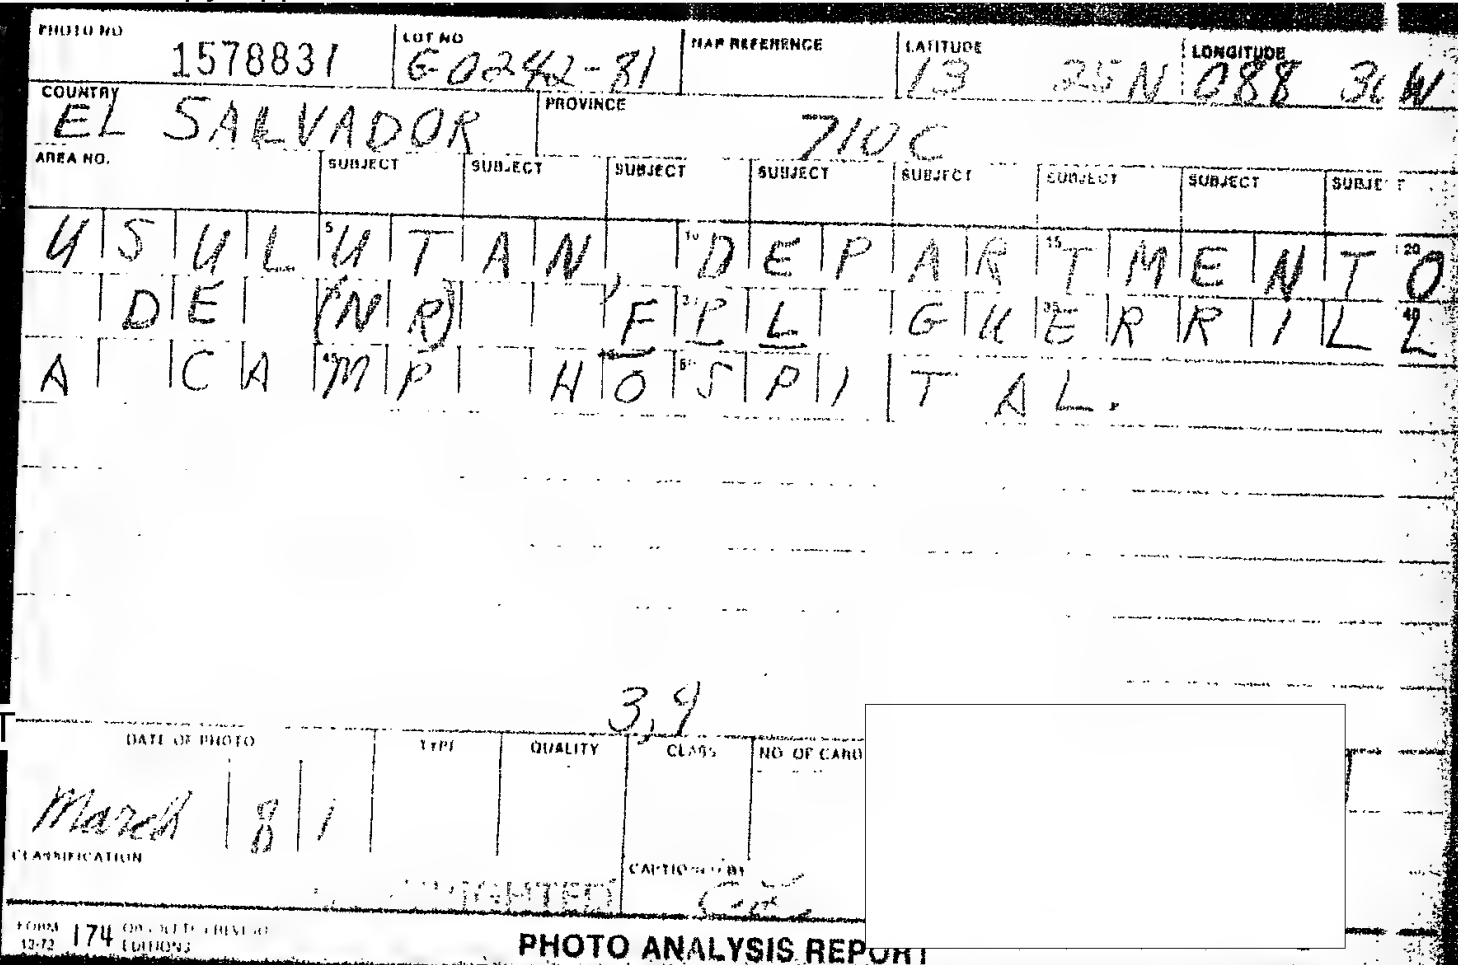 PHOTO NO 1578831 LOT NO G0242-81 MAP REFERENCE LATITUDE 13 25N LONGITUDE 088 36 W
COUNTRY EL SALVADOR PROVINCE 710C
AREA NO. SUBJECT SUBJECT SUBJECT SUBJECT SUBJECT SUBJECT SUBJECT SUBJECT
USULUTAN, DEPARTMENTO
DE (NR) FPL GUERRILL
A CAMP HOSPITAL.
3,4
DATE OF PHOTO TYPE QUALITY CLASS NO. OF CARD
March 81
CLASSIFICATION CAPTIONED BY
FORM 12-72 174 OBSOLETE PREVIOUS EDITIONS
PHOTO ANALYSIS REPORT